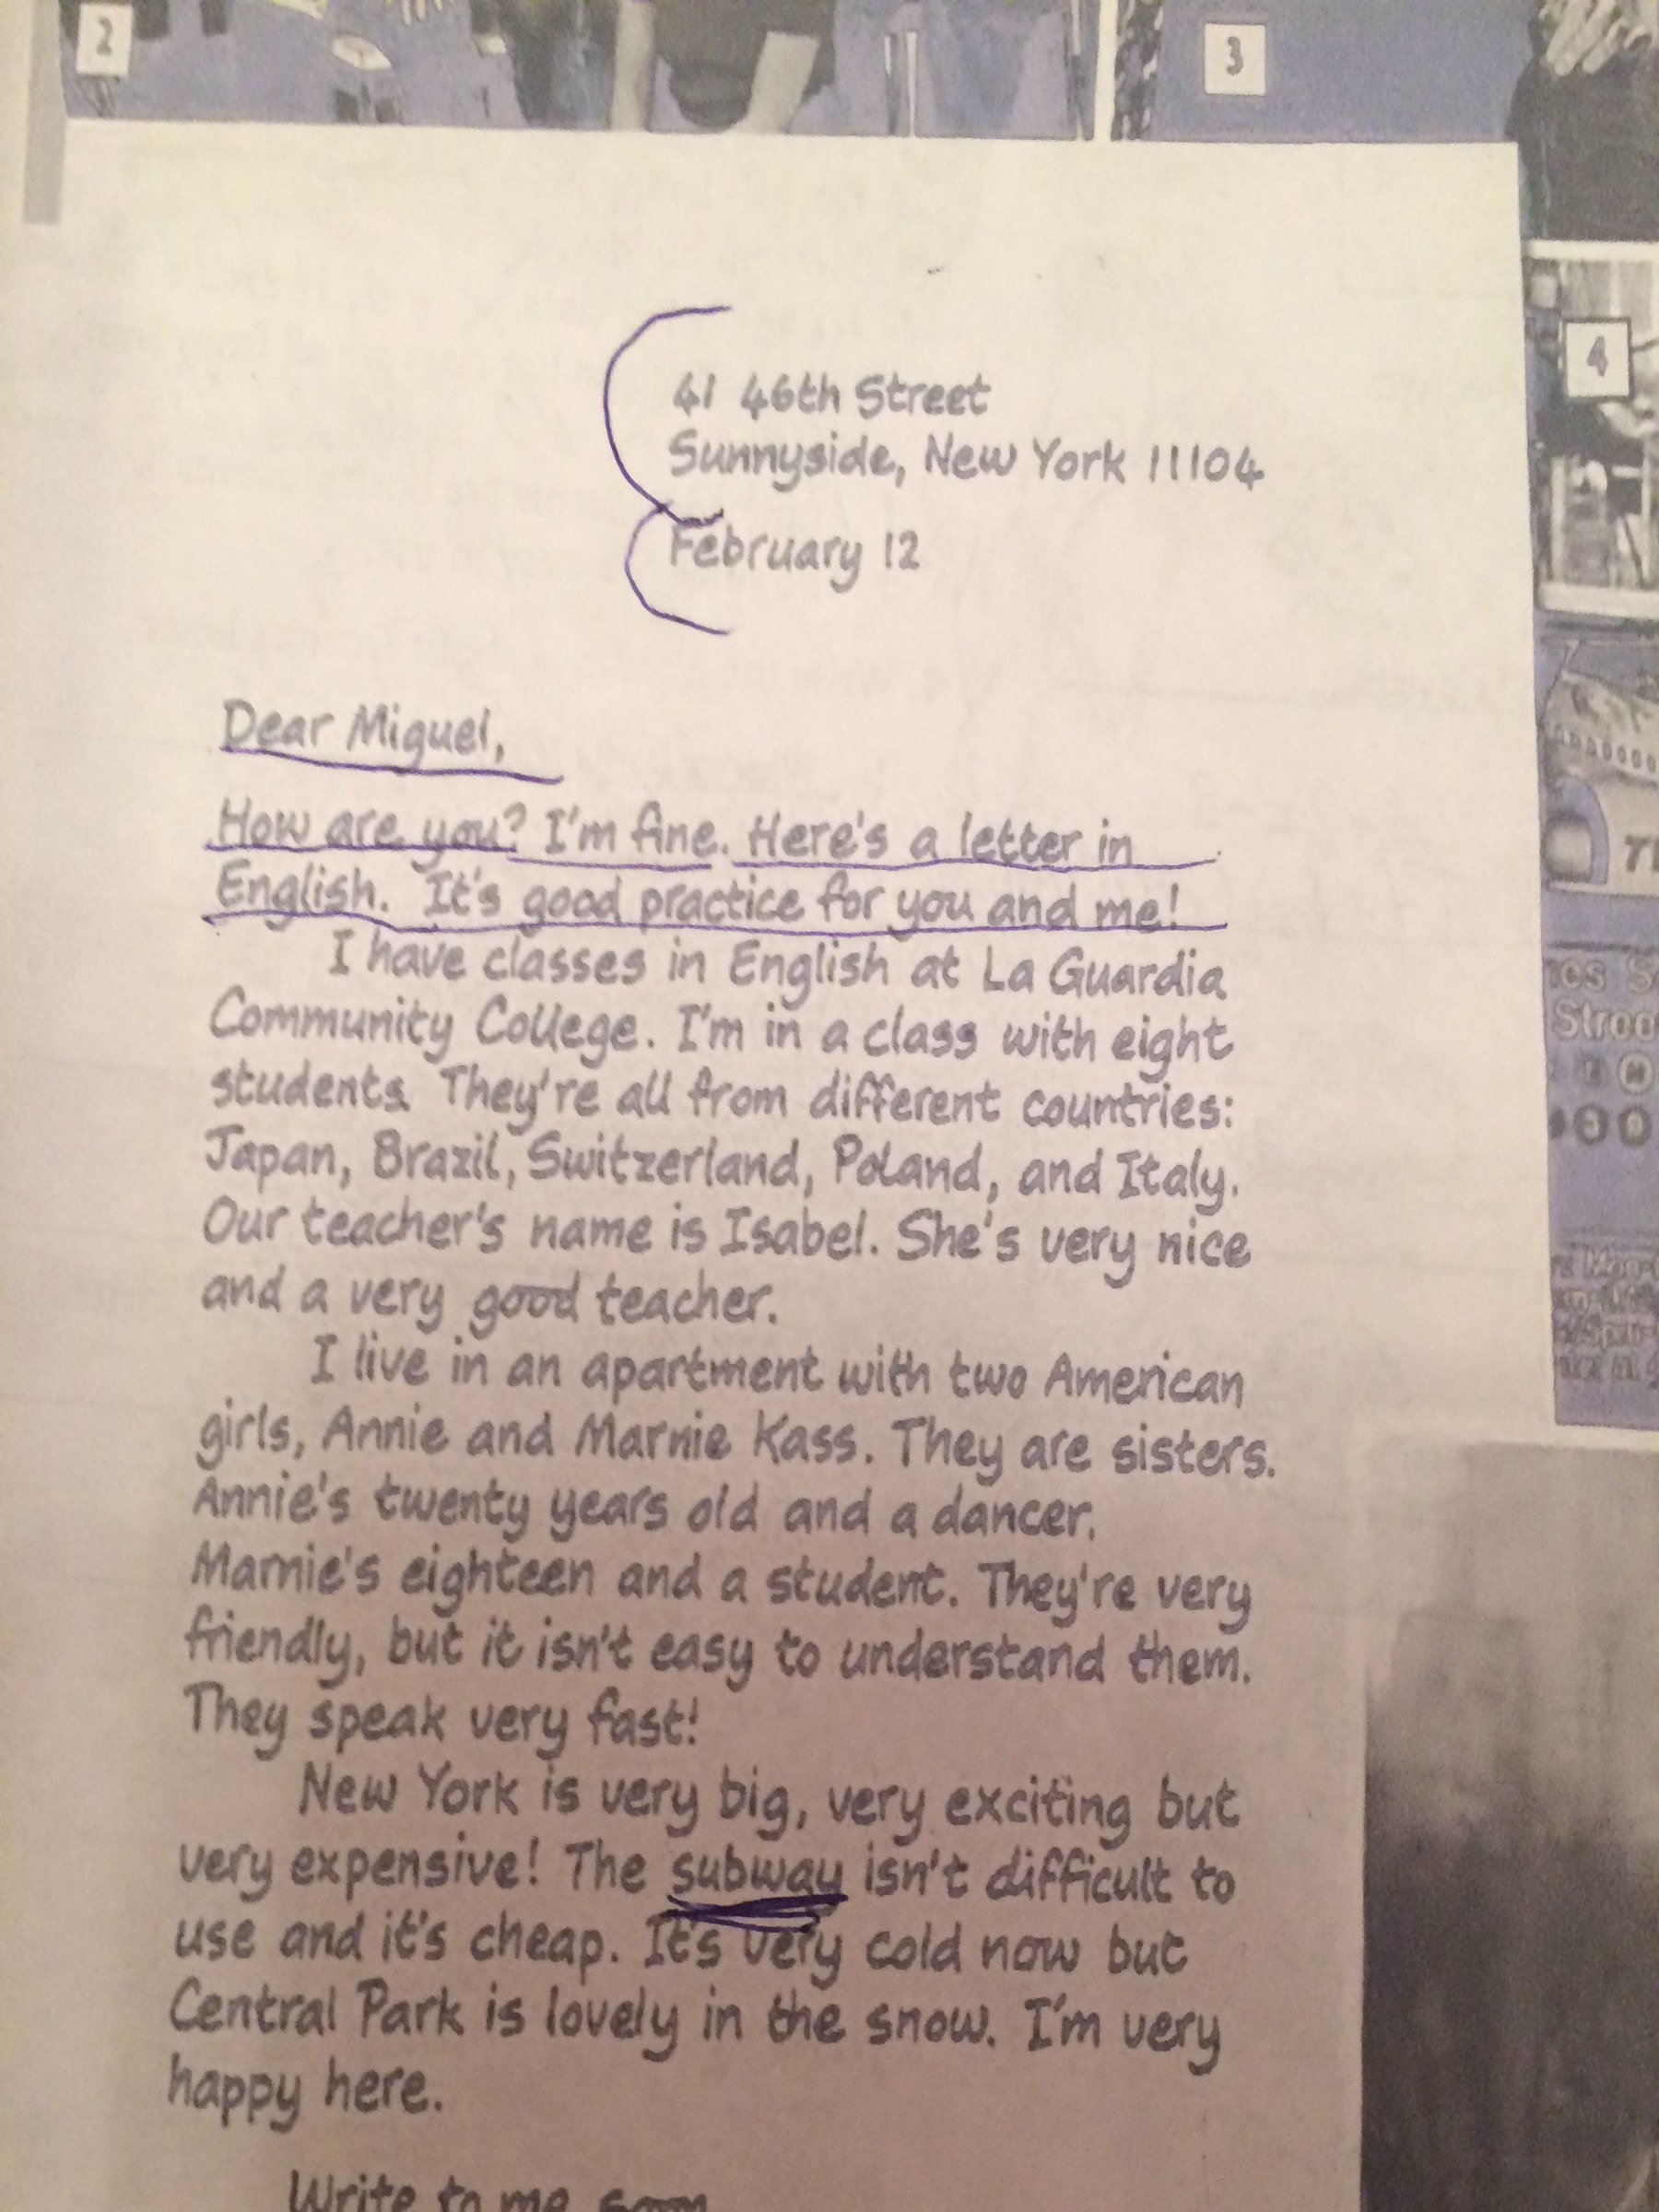 2
3
4
41 46th Street
Sunnyside, New York 11104
February 12
Dear Miguel,
How are you? I'm fine. Here's a letter in
English. It's good practice for you and me!
I have classes in English at La Guardia
Community College. I'm in a class with eight
students. They're all from different countries:
Japan, Brazil, Switzerland, Poland, and Italy.
Our teacher's name is Isabel. She's very nice
and a very good teacher.
I live in an apartment with two American
girls, Annie and Marnie Kass. They are sisters.
Annie's twenty years old and a dancer.
Marnie's eighteen and a student. They're very
friendly, but it isn't easy to understand them.
They speak very fast!
New York is very big, very exciting but
very expensive! The subway isn't difficult to
use and it's cheap. It's very cold now but
Central Park is lovely in the snow. I'm very
happy here.
Write to me soon